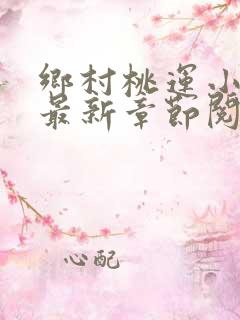 鄉村桃運小
最新章節閱
心配